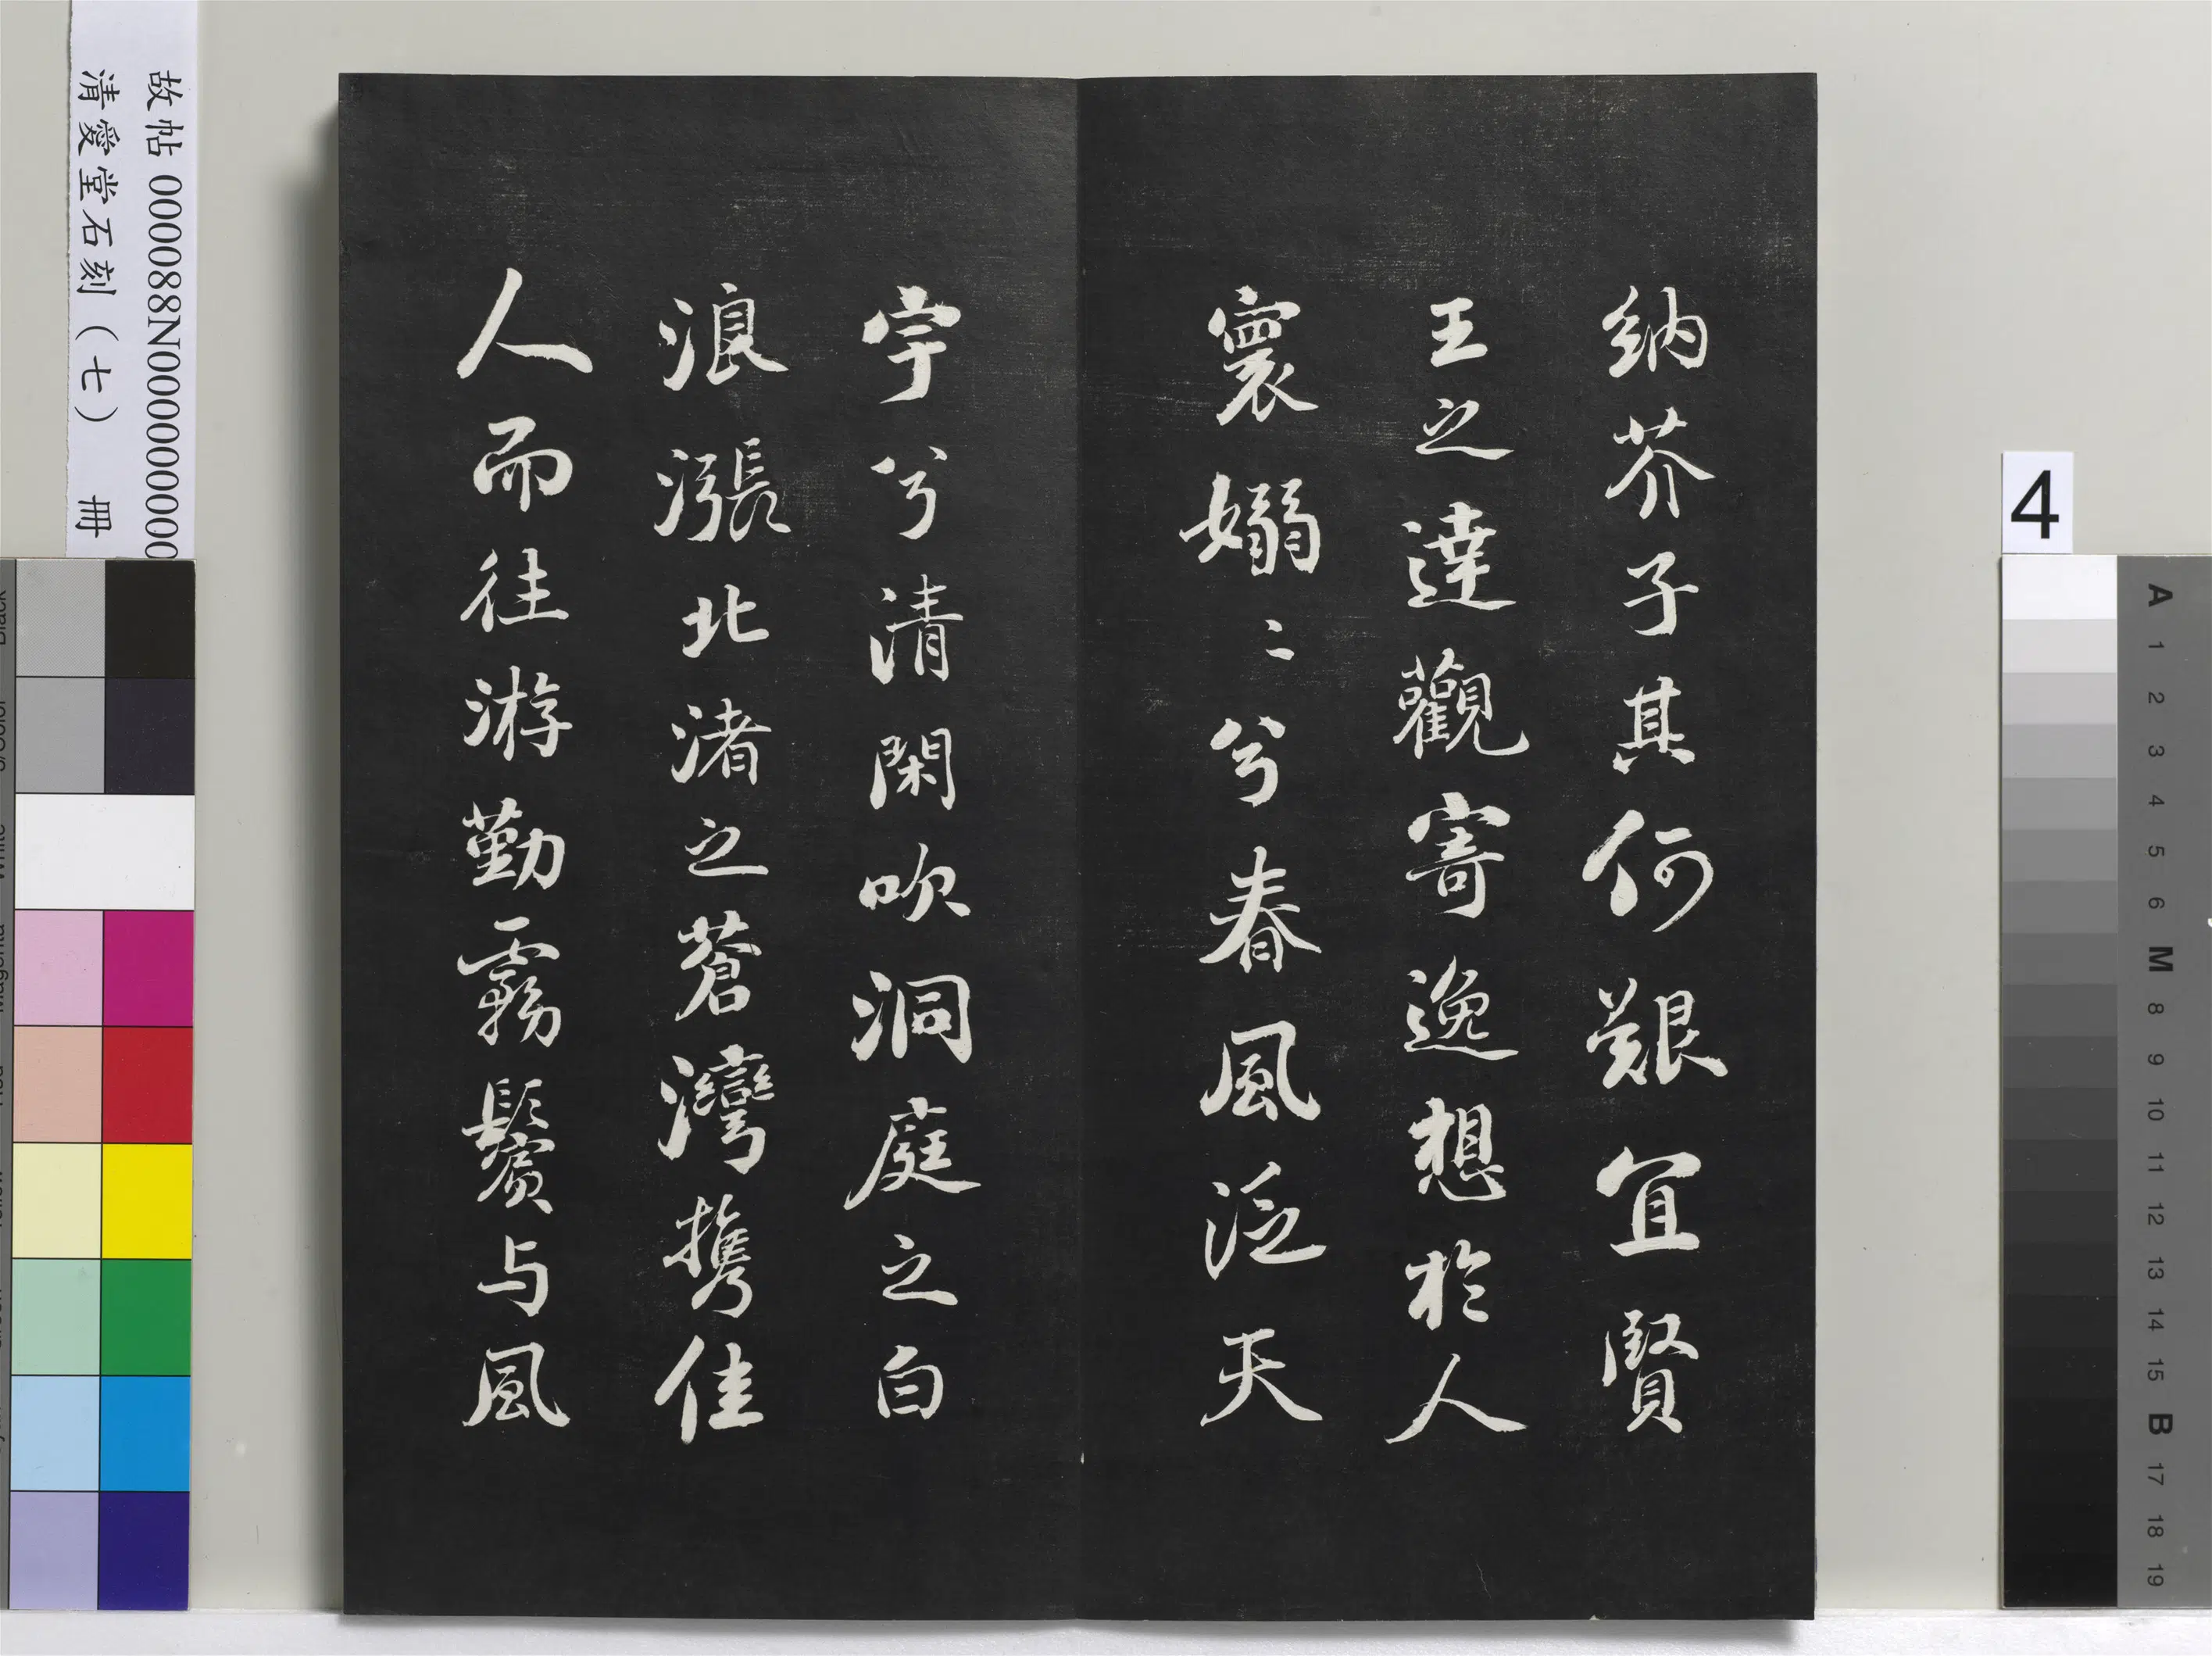 納芥子其何艱宜賢
王之達觀寄逸想於人
寰嫋〻兮春風泛天
宇兮清閑吹洞庭之白
浪漲北渚之蒼灣攜佳
人而往游勤霧鬢与風
故帖 000088N000000000
清愛堂石刻（七） 冊
4
A
1
2
3
4
5
6
M
8
9
10
11
12
13
14
15
B
17
18
19